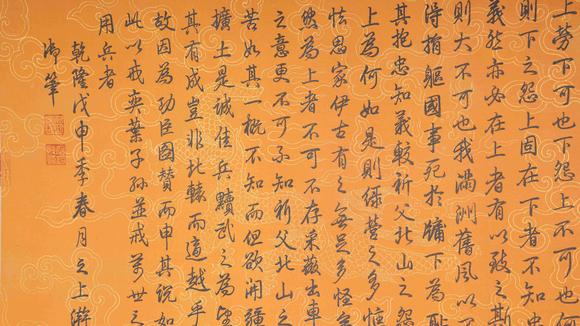 上勞下可也下怨上不可也何
則下之怨上固在下者不知忠
義然亦必在上者有以致之斯
則大不可也我滿洲舊風以
得捐軀國事死於牖下為恥
其抱忠知義較祈父北山之怨
上為何如是則綠營之多恒
怯思家伊古有之無足多怪
彼為上者不可不存采薇出車
之意更不可不知祈父北山之
苦如其一概不知而但欲開疆
擴土是誠佳兵黷武之為望
其有成豈非北轅而適越乎
故因為功臣圖贊而申其說如
此以戒奕葉子孫並戒萬世之
用兵者
乾隆戊申季春月之上澣
御筆